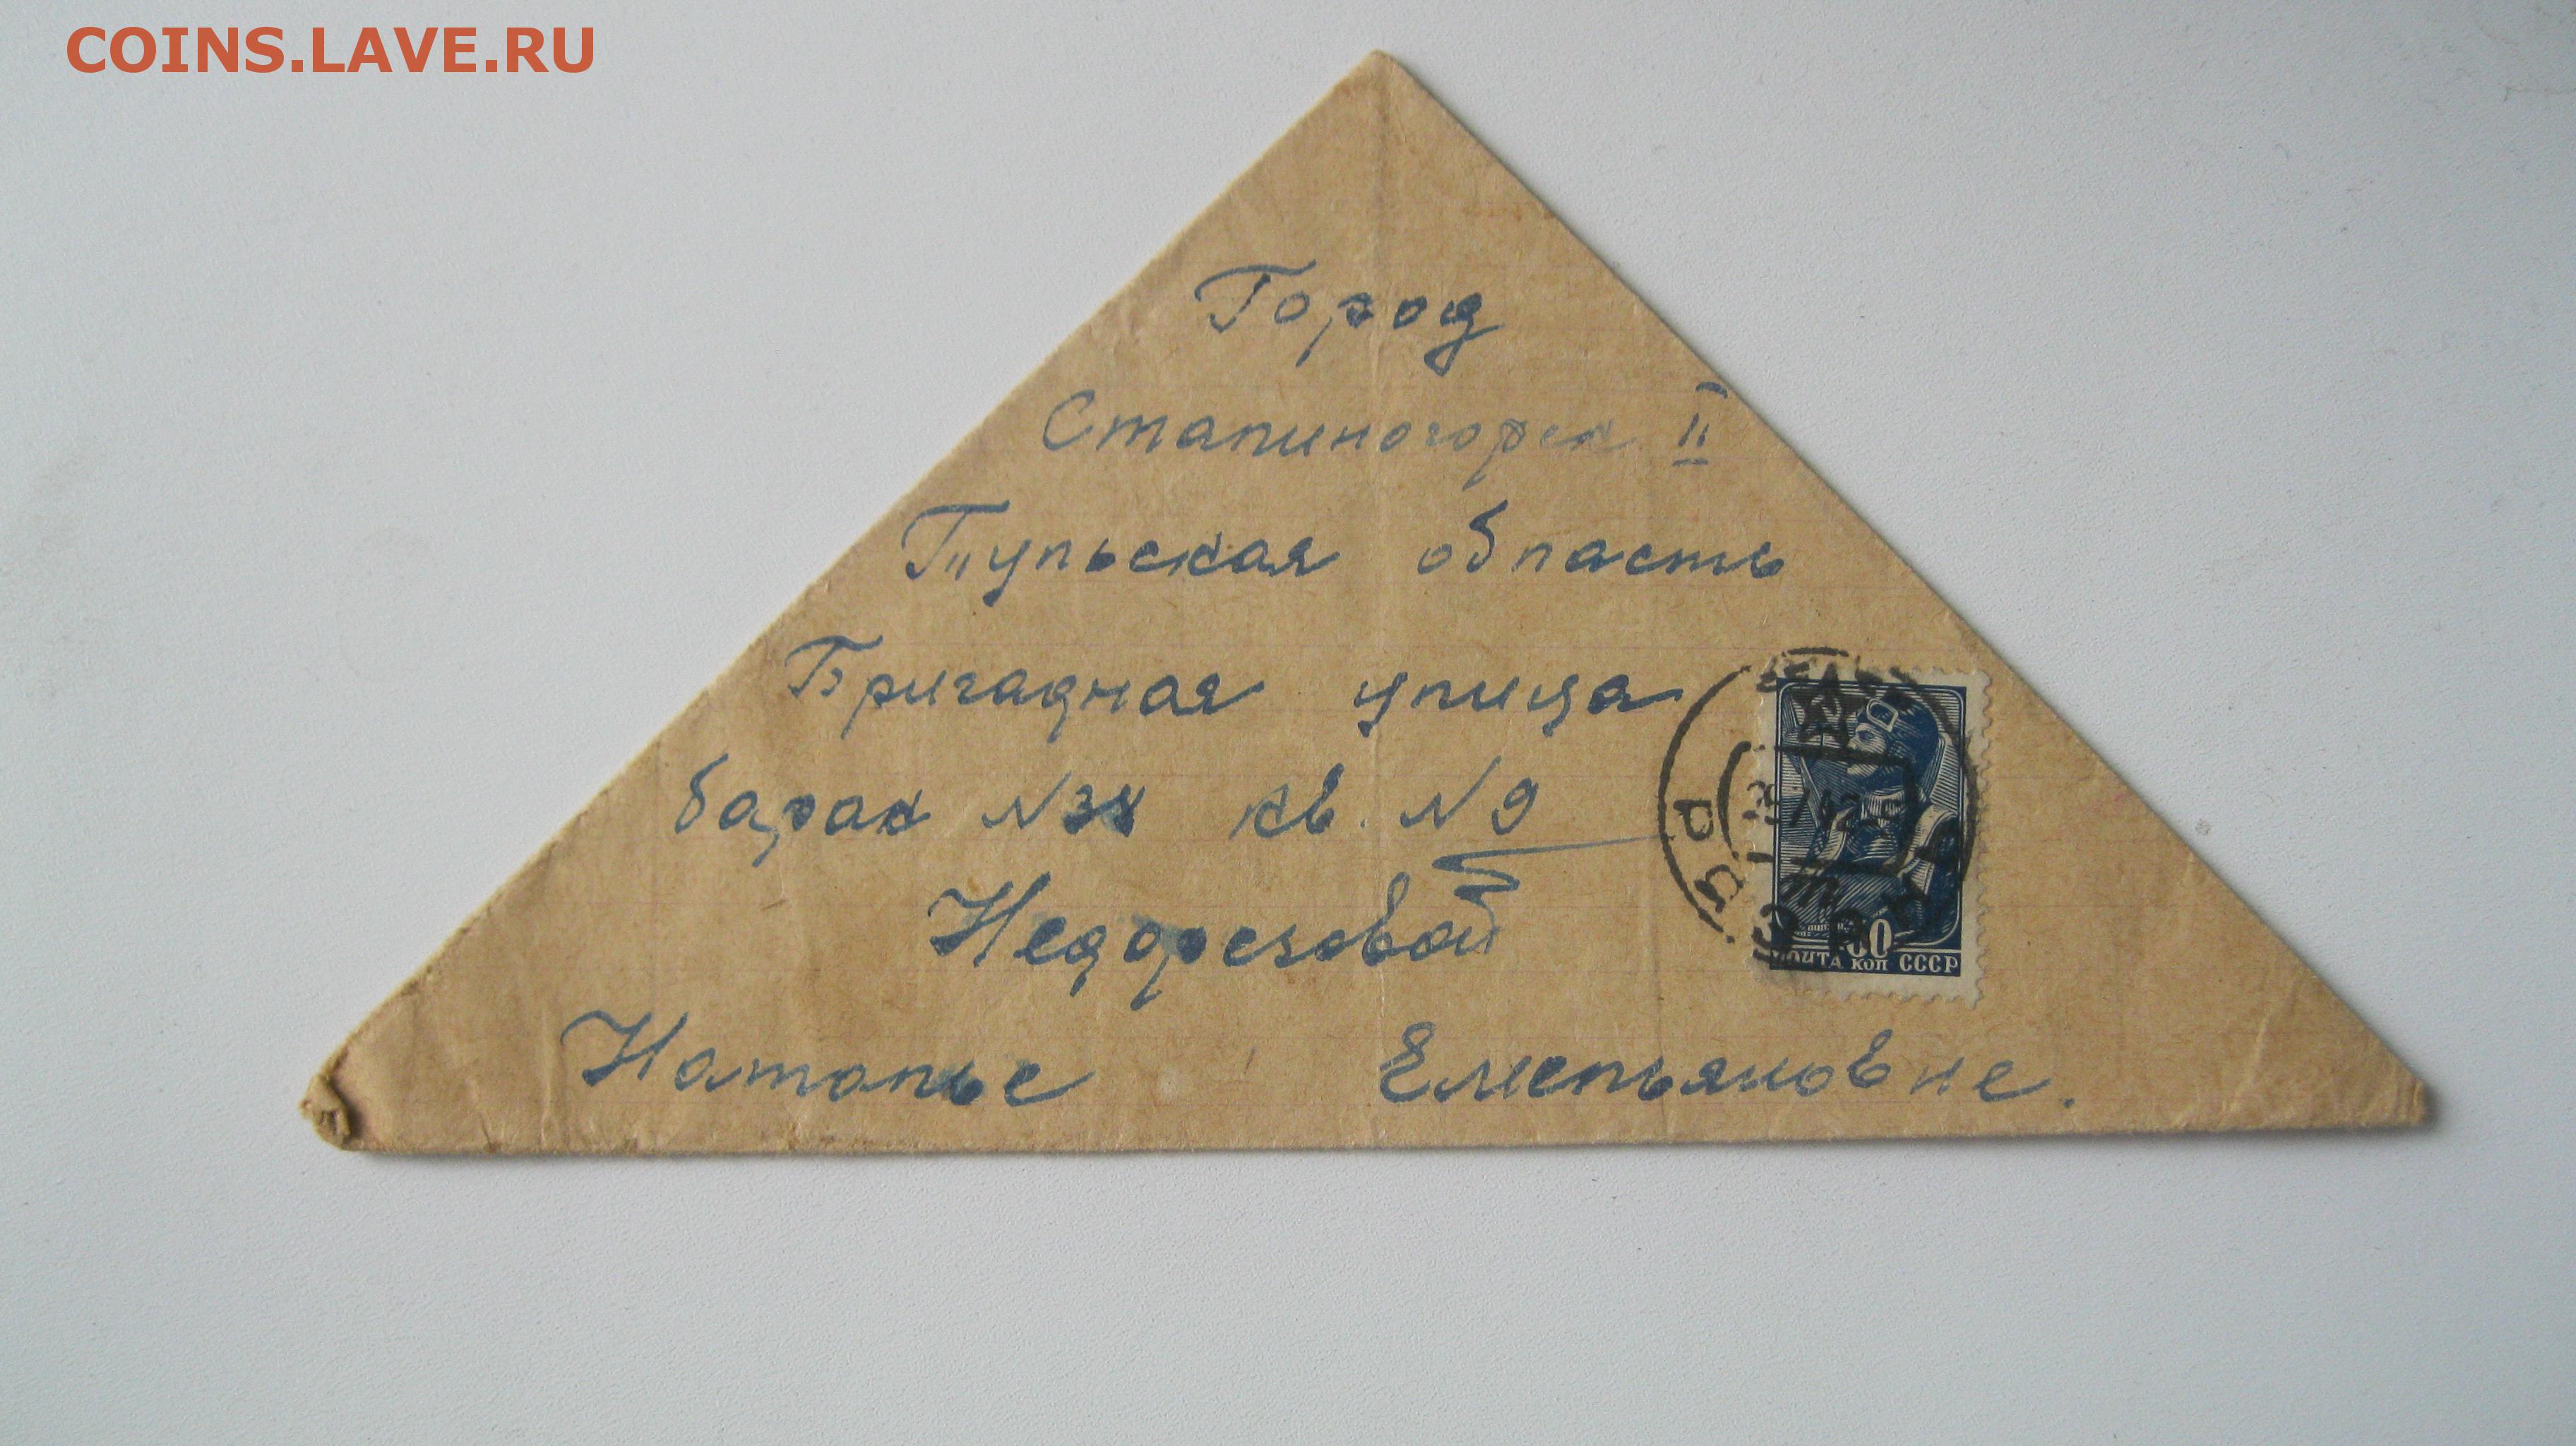 COINS.LAVE.RU
Город
Сталиногорск II
Тульская область
Бригадная улица
барак №38 кв. №9
Недорезовой
Наталье Емельяновне.
ПОЧТА КОП СССР